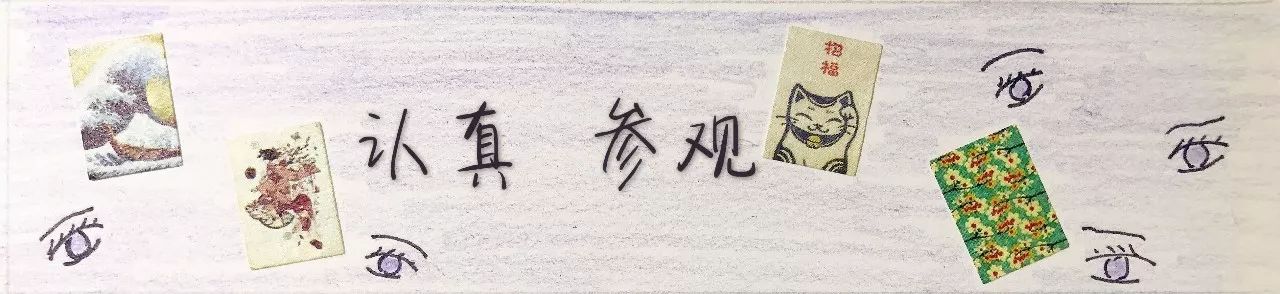 认真 参观
招
福